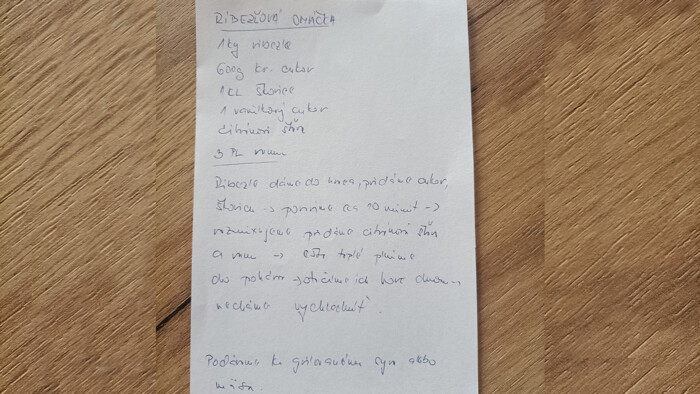 RIBEZĽOVÁ OMÁČKA
1kg ribezle
600g kr. cukor
1 KL škorice
1 vanilkový cukor
citrónová šťava
3 PL rumu
Ribezle dáme do hrnca, pridáme cukor,
škoricu → povaríme cca 10 minút →
rozmixujeme pridáme citrónovú šťavu
a rum → ešte teplé plníme
do pohárov → otočíme ich hore dnom →
necháme vychladnúť.
Podávame ku grilovanému syru alebo
mäsu.